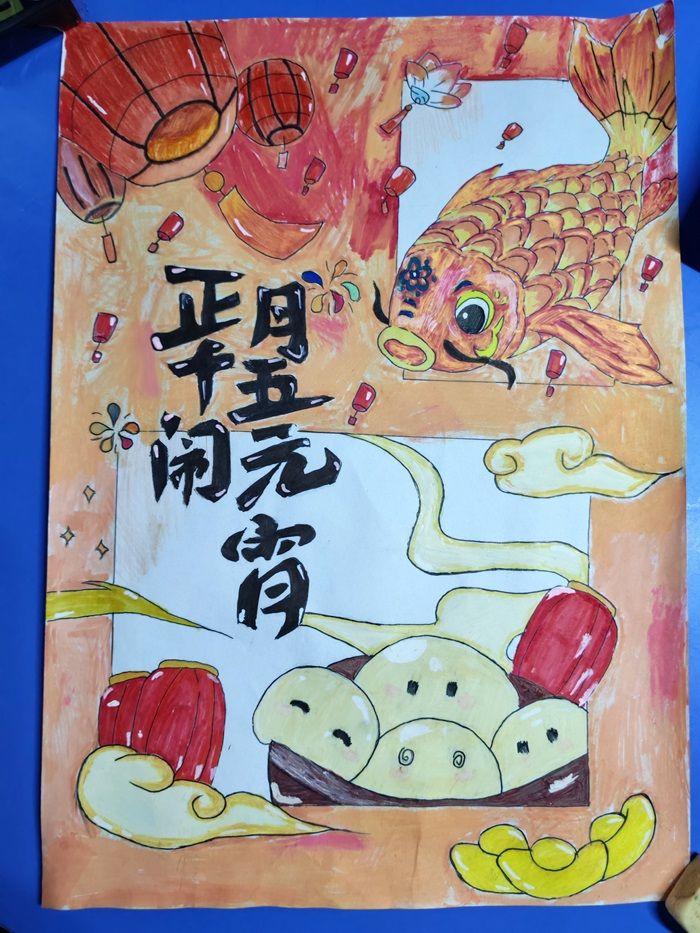 正月
十五
闹元
宵